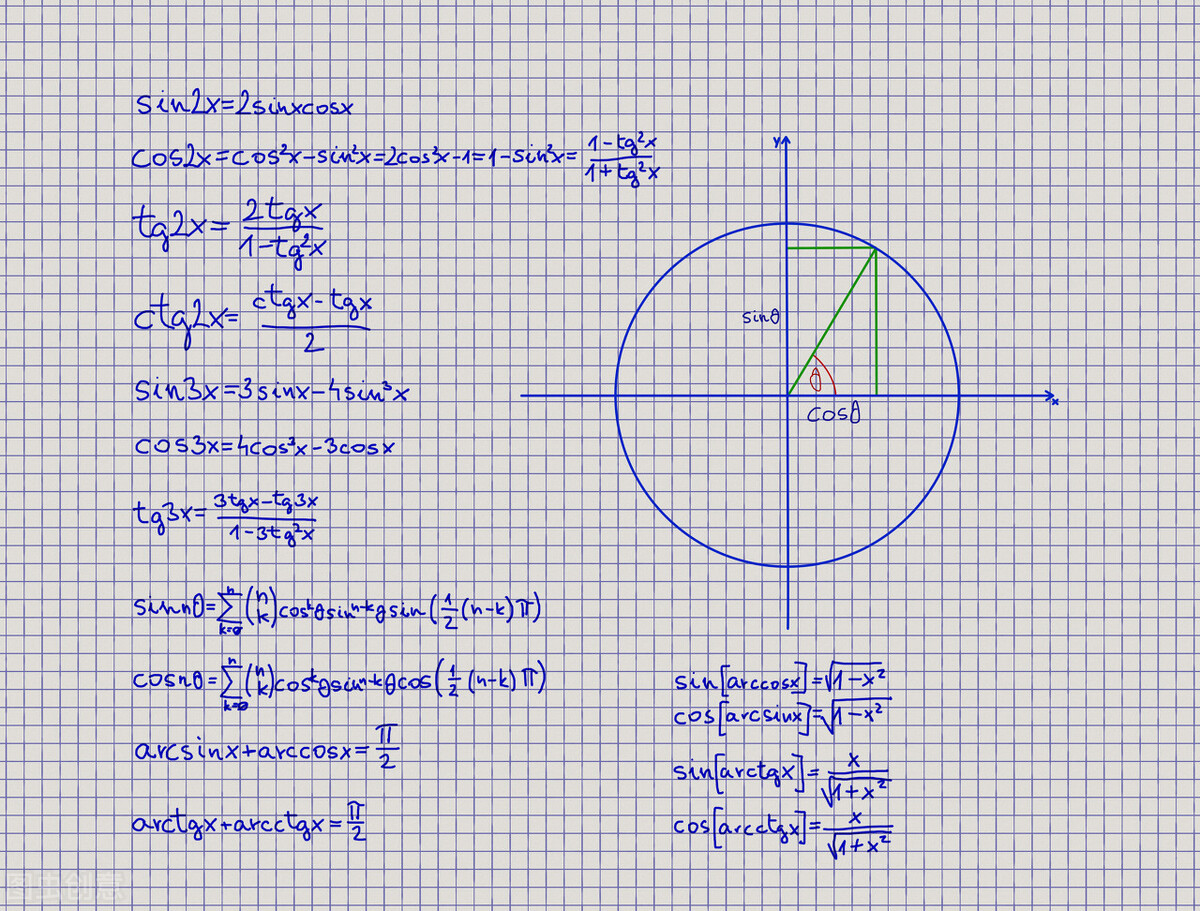 sin2x=2sinxcosx
cos2x=cos²x-sin²x=2cos²x-1=1-sin²x=(1-tg²x)/(1+tg²x)
tg2x=(2tgx)/(1-tg²x)
ctg2x=(ctgx-tgx)/2
sin3x=3sinx-4sin³x
cos3x=4cos³x-3cosx
tg3x=(3tgx-tg3x)/(1-3tg²x)
sinnθ=∑_{k=0}^{n}(n k)cosᵏθsinⁿ⁻ᵏθsin(1/2(n-k)π)
cosnθ=∑_{k=0}^{n}(n k)cosᵏθsinⁿ⁻ᵏθcos(1/2(n-k)π)
arcsinx+arccosx=π/2
arctgx+arcctgx=π/2
y
sinθ
θ
cosθ
x
sin[arccosx]=√(1-x²)
cos[arcsinx]=√(1-x²)
sin[arctgx]=x/√(1+x²)
cos[arcctgx]=x/√(1+x²)
图虫创意